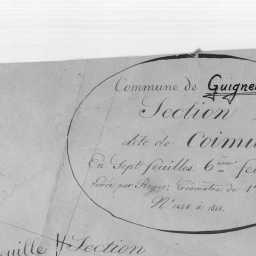 Commune de Guigne
Section
dite de Coimu
En Sept feuilles. 6ème fe
Levée par Géomètre de 1
N° à
uille Section